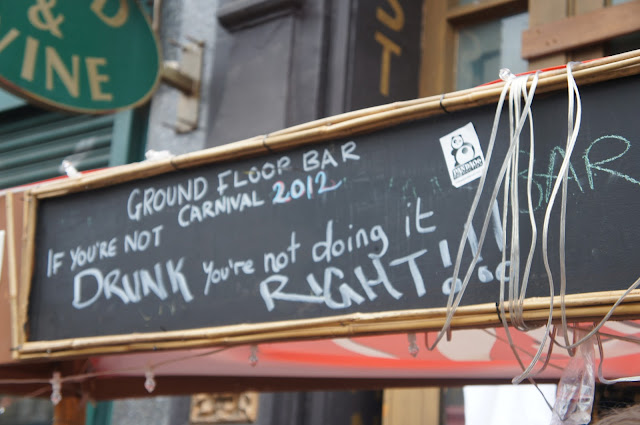 & B
WINE
ST
GROUND FLOOR BAR
CARNIVAL 2012
IF YOU'RE NOT
DRUNK you're not doing it
RIGHT!!!
BAR